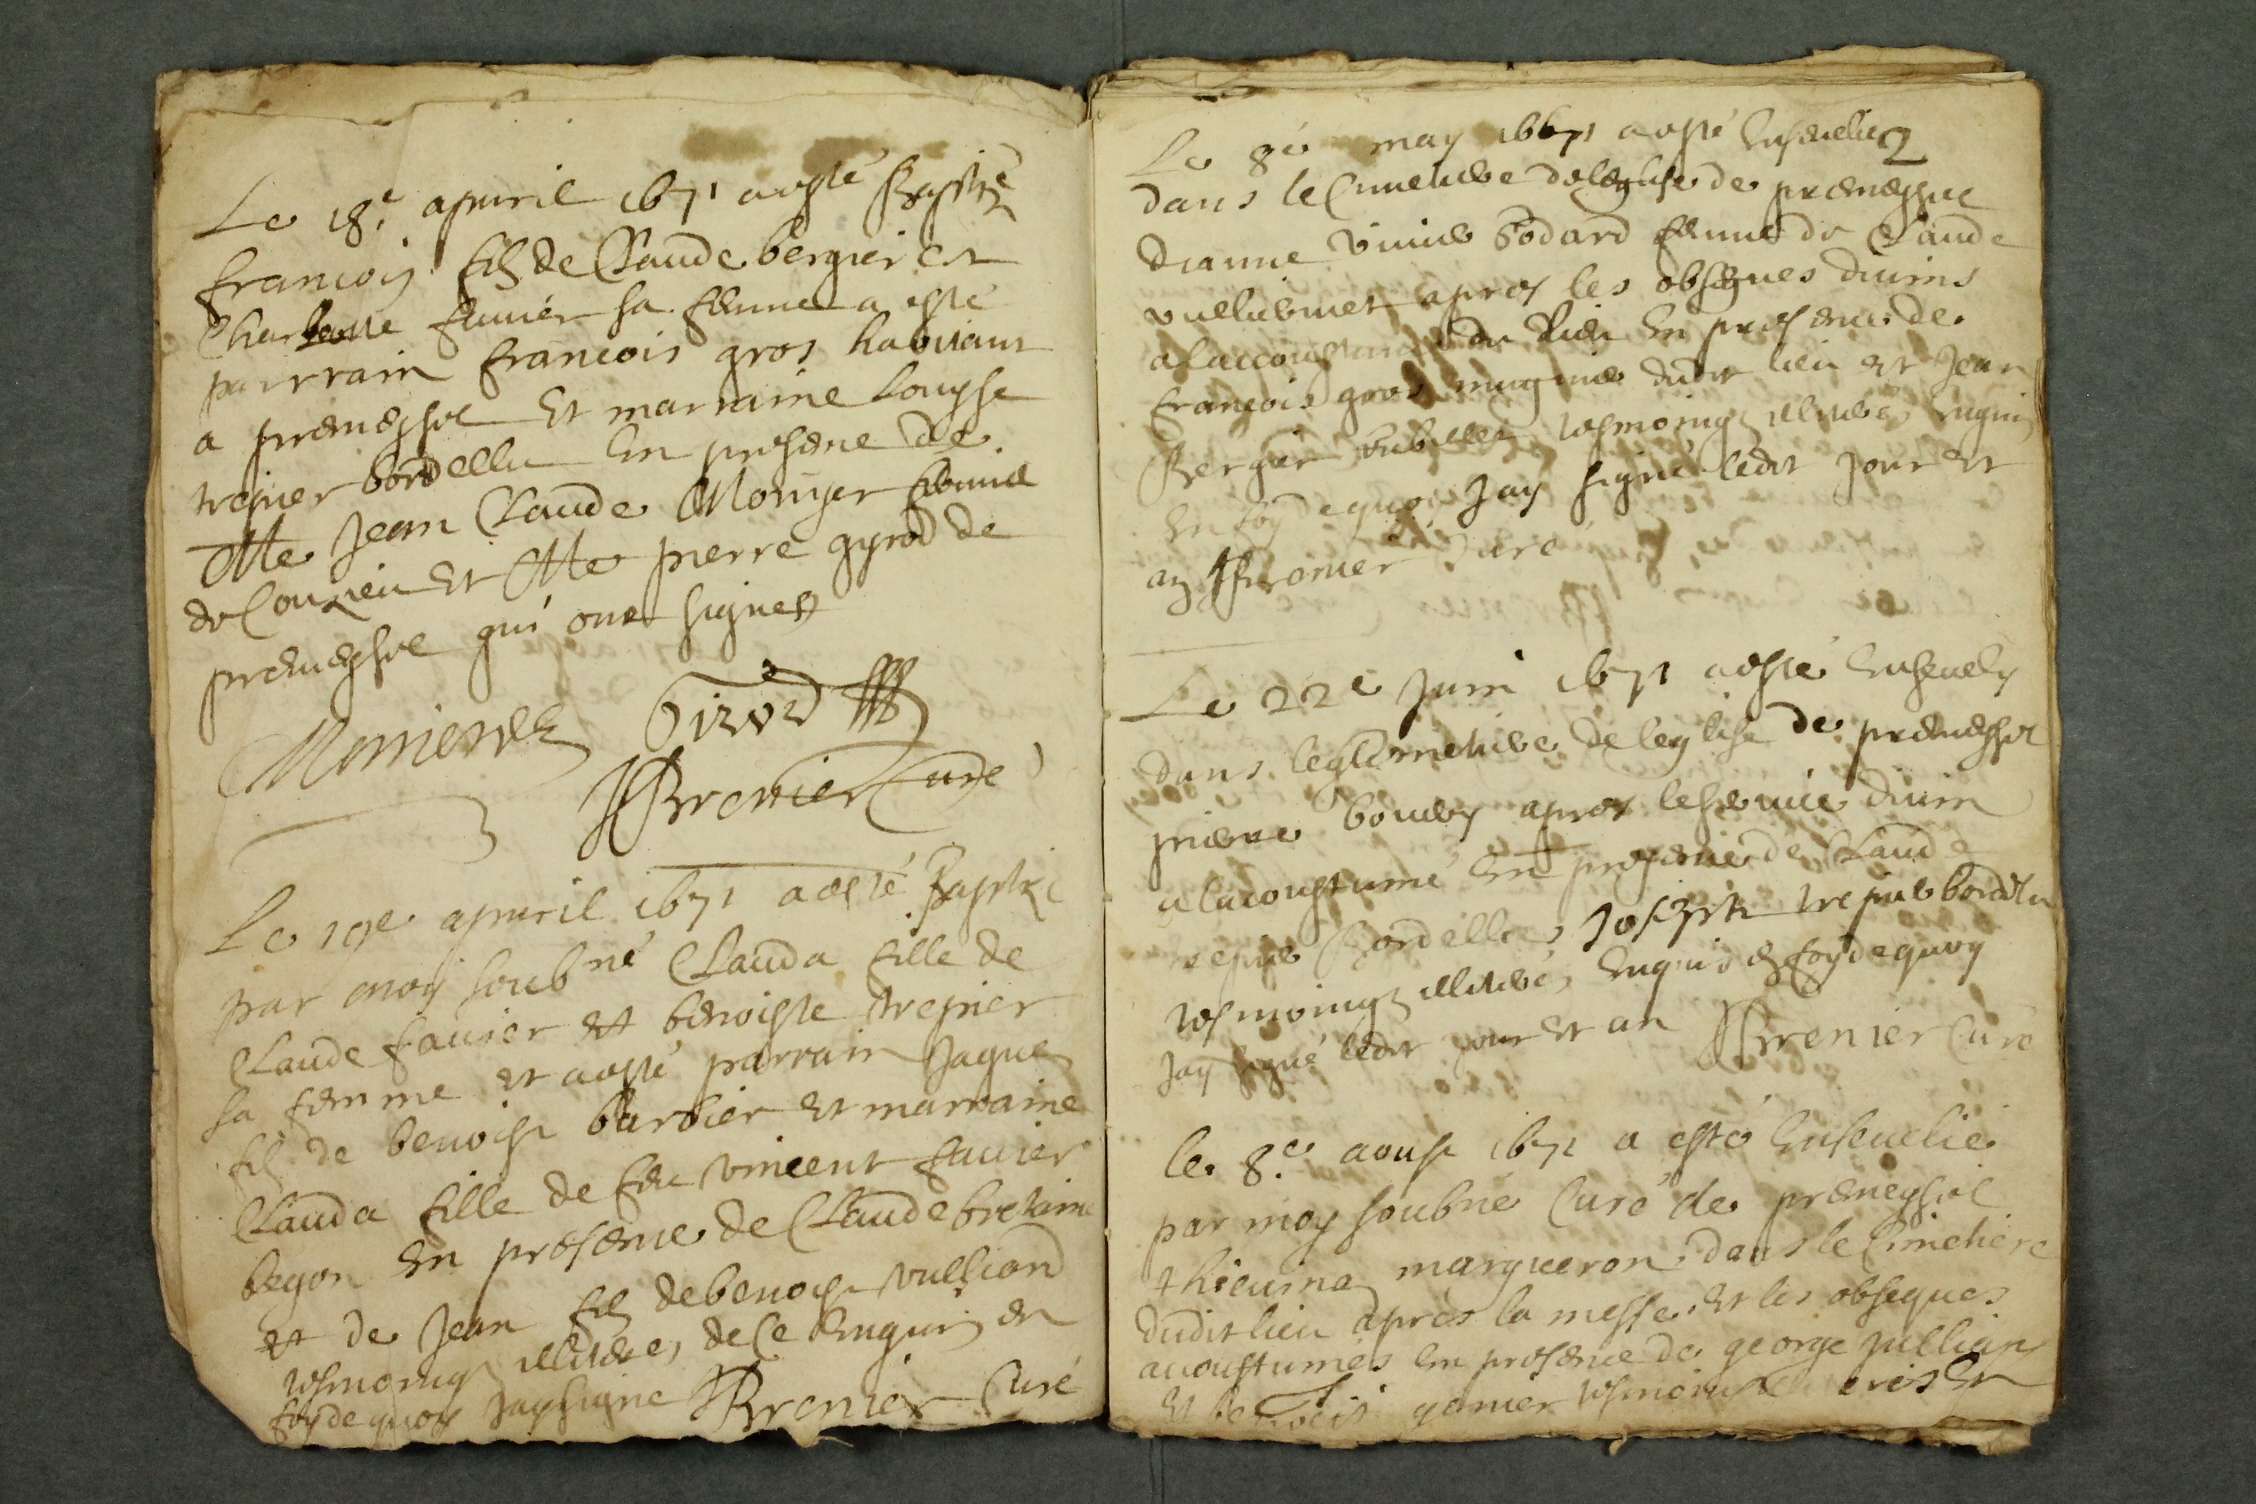 Le 18e apuril 1671 a esté Baptizé
francois filz de Claude bergier et
Charlotte fauier sa femme a esté
parrrain francois gros habitant
a premeysel Et marraine Louyse
trepier bordellu En presene de
Me Jean Claude Monyer
de Conzieu Et Me pierre gyrod de
premeysel qui ont signez
Girod
JBrenier Curé
Le 19e apuril 1671 a esté Baptizé
par moy soubné Clauda fille de
Claude fauier et benoiste trepier
sa femme et a esté parrain Jaques
filz de benoist barbier et marraine
Clauda fille de feu vincent fauier
begon En presence de Claude
et de Jean filz de benoist vulliand
tesmoings illiteres de ce Enquis en
foy de quoy Jay signe JBrenier Curé
Le 8e may 1671 a esté Enseuelie
dans le Cimetiere de leglise de premeysel
femme de Claude
apres les obseques diuins
a laccoustumé du lieu En presence de
francois gros dudit lieu et Jean
Bergier tesmoings illiterés Enquis
En foy de quoy Jay signé ledit jour et
an JBrenier Curé
Le 22e Juin 1671 a esté Enseuely
dans le Cimetiere de leglise de premeysel
pierre apres le seruice diuin
a lacoustumé En presence de Claude
trepier Bordellu Joseph trepier bordellu
tesmoings illiterés Enquis En foy de quoy
Jay signé ledit jour et an JBrenier Curé
le 8e aoust 1671 a esté Enseuelie
par moy soubné Curé de premeysel
thieuina marqueron dans le Cimetiere
dudit lieu apres la messe Et les obseques
acoustumés En presence de george Jullien
Et benoist tesmoins En